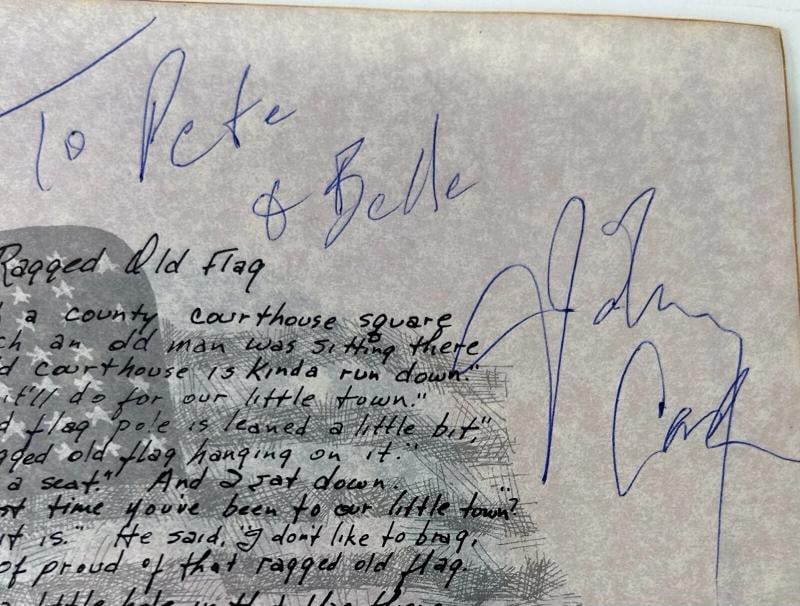 To Pete
& Belle
Ragged Old Flag
Johnny
Cash
a county courthouse square
an old man was sitting there
courthouse is kinda run down."
it'll do for our little town."
flag pole is leaned a little bit,"
old flag hanging on it."
a seat." And I sat down.
time you've been to our little town?"
it is." He said, "I don't like to brag,
of proud of that ragged old flag.
little hole in that flag there